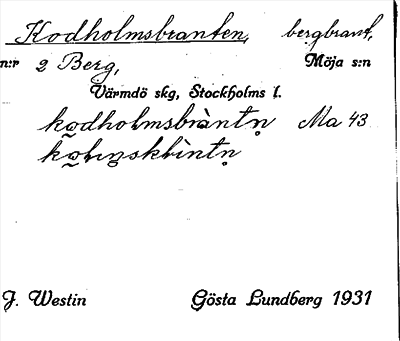 Kodholmsbranten, bergbrant,
n:r 2 Berg, Möja s:n
Värmdö skg, Stockholms l.
kodholmsbràntn̥ Ma 43
J. Westin Gösta Lundberg 1931